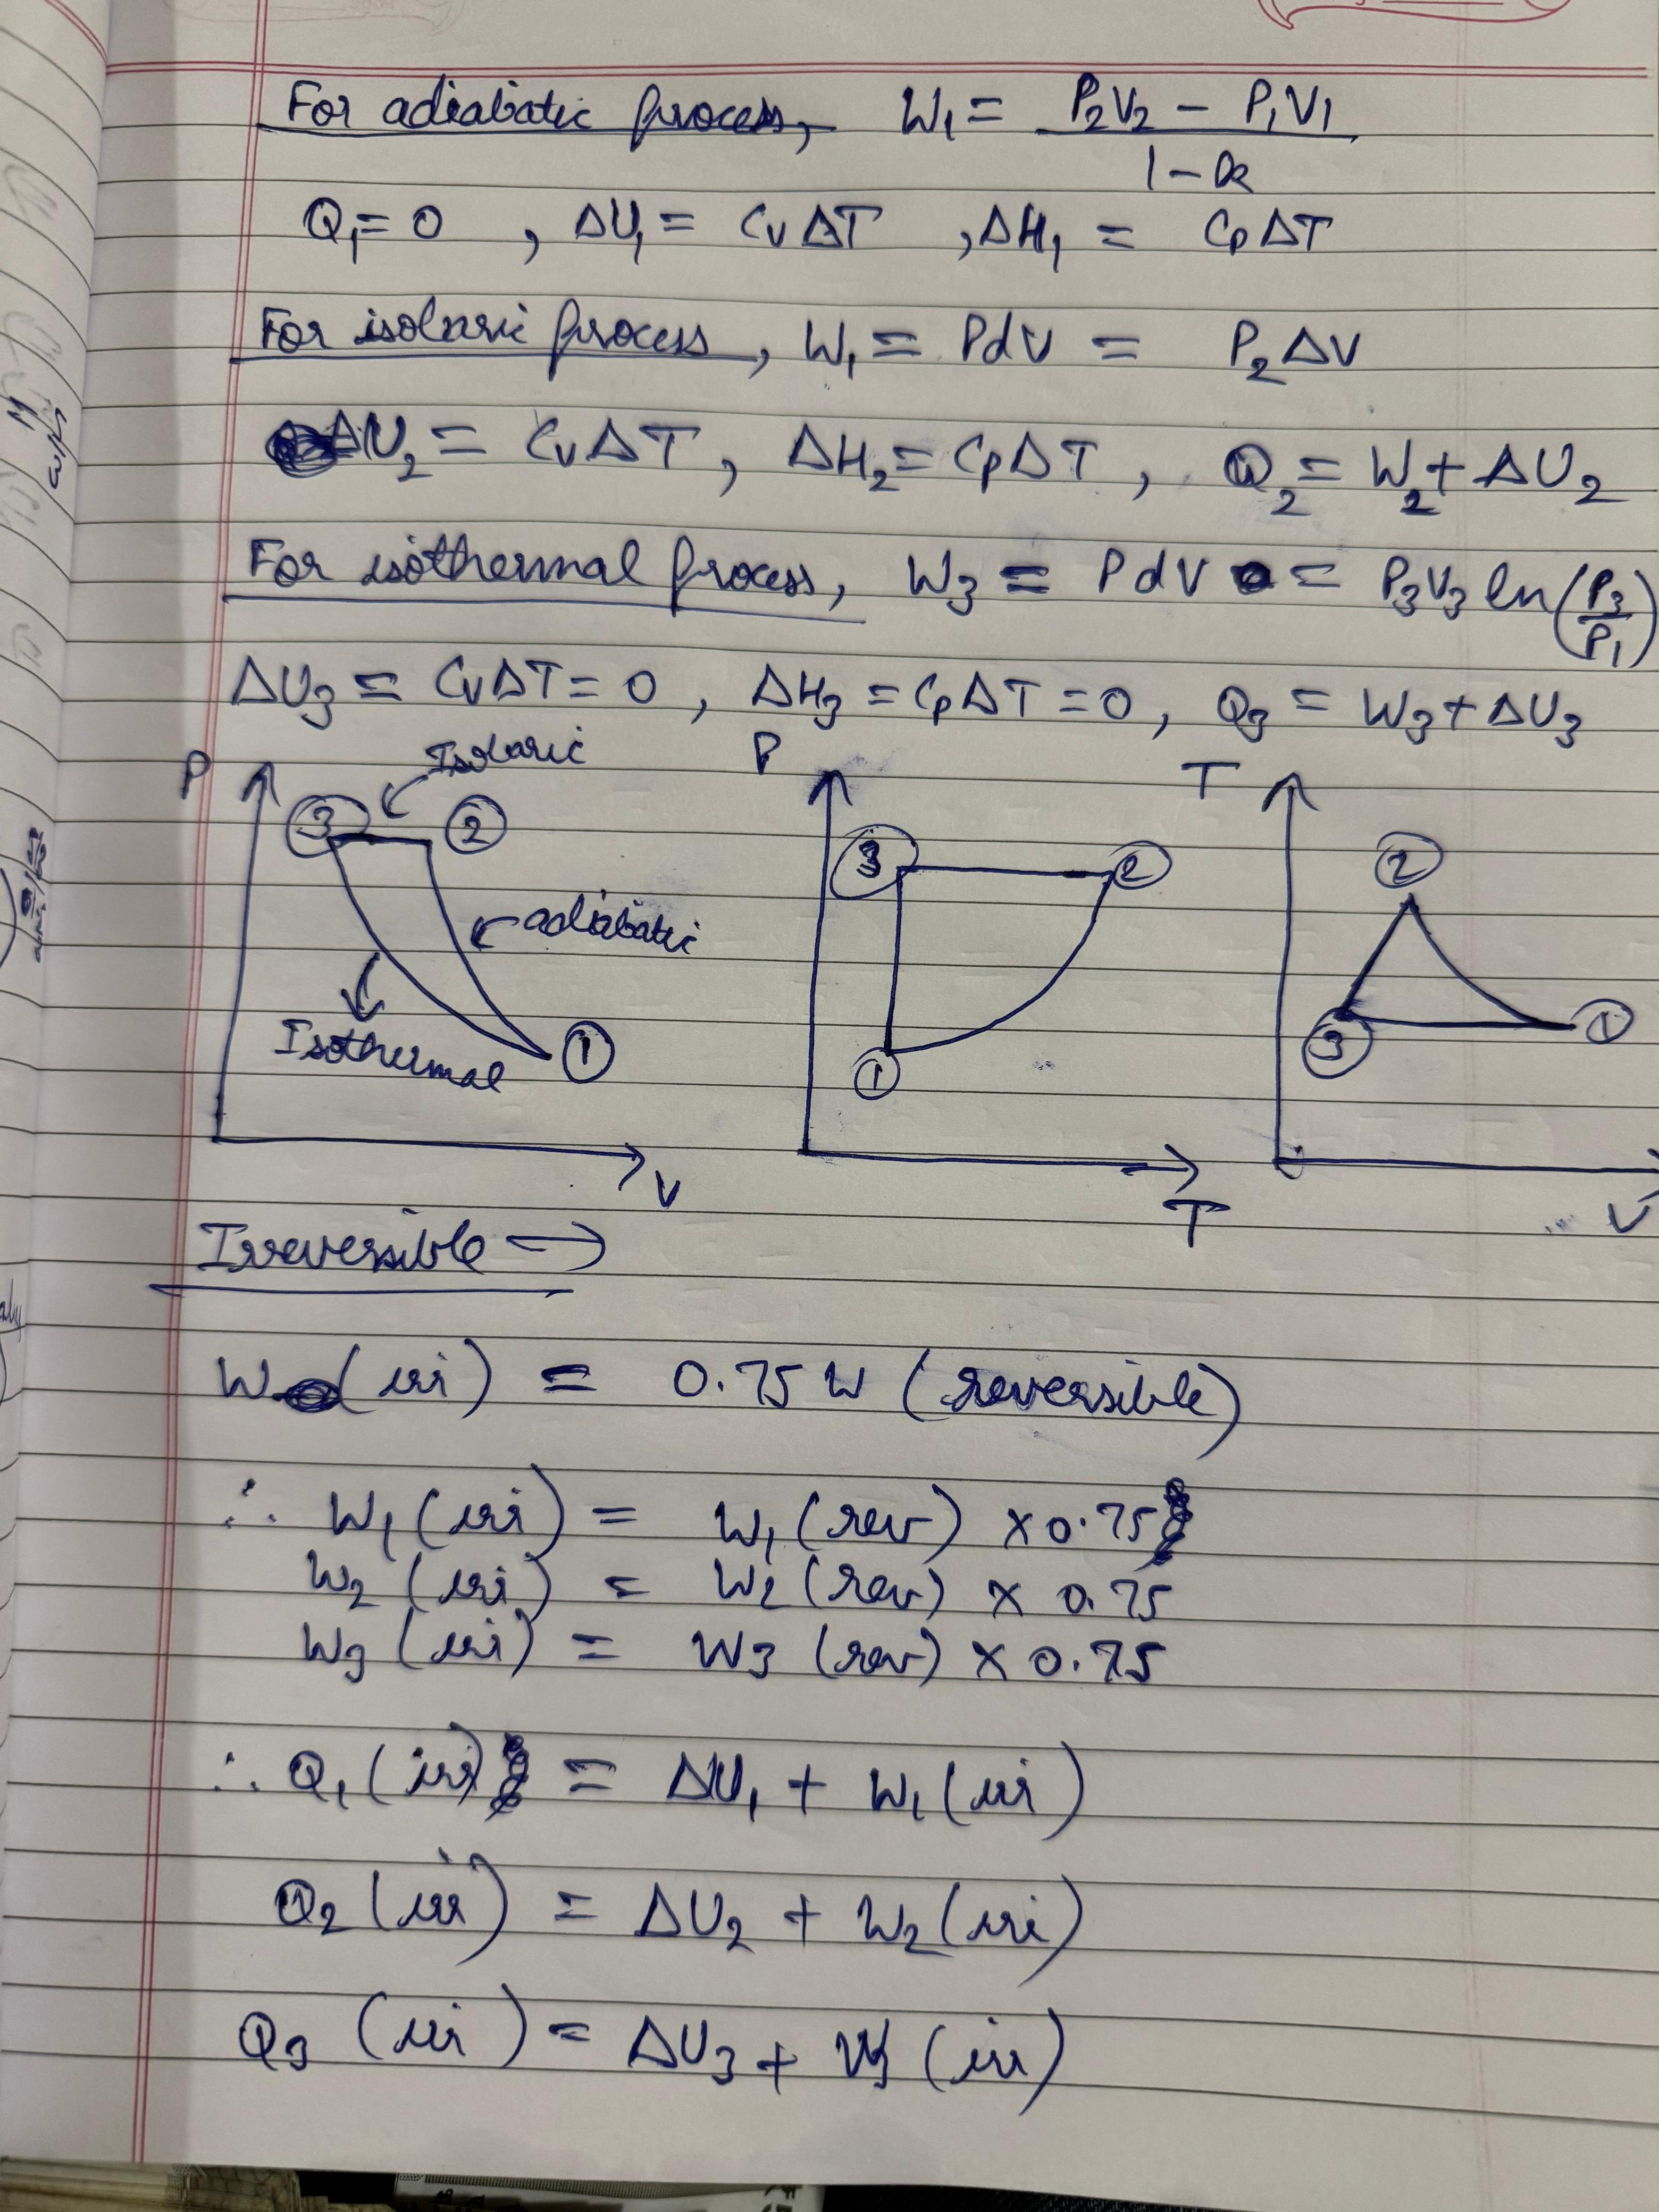 For adiabatic process, W₁ = P₂V₂ - P₁V₁
1-k
Q₁= 0 , ΔU₁ = CvΔT , ΔH₁ = CpΔT
For isobaric process, W₁ = PdV = P₂ΔV
ΔU₂ = CvΔT, ΔH₂= CpΔT, Q₂= W₂+ ΔU₂
For isothermal process, W₃ = PdV = P₃V₃ ln(P₃/P₁)
ΔU₃ = CvΔT = 0, ΔH₃ = CpΔT = 0, Q₃ = W₃+ΔU₃
P Isobaric P T
3 2 3 2 2
adiabatic
Isothermal 1 1 3 1
V T V
Irreversible →
W (irr) = 0.75 W (reversible)
∴ W₁ (irr) = W₁ (rev) × 0.75
W₂ (irr) = W₂ (rev) × 0.75
W₃ (irr) = W₃ (rev) × 0.75
∴ Q₁ (irr) = ΔU₁ + W₁ (irr)
Q₂ (irr) = ΔU₂ + W₂ (irr)
Q₃ (irr) = ΔU₃ + W₃ (irr)